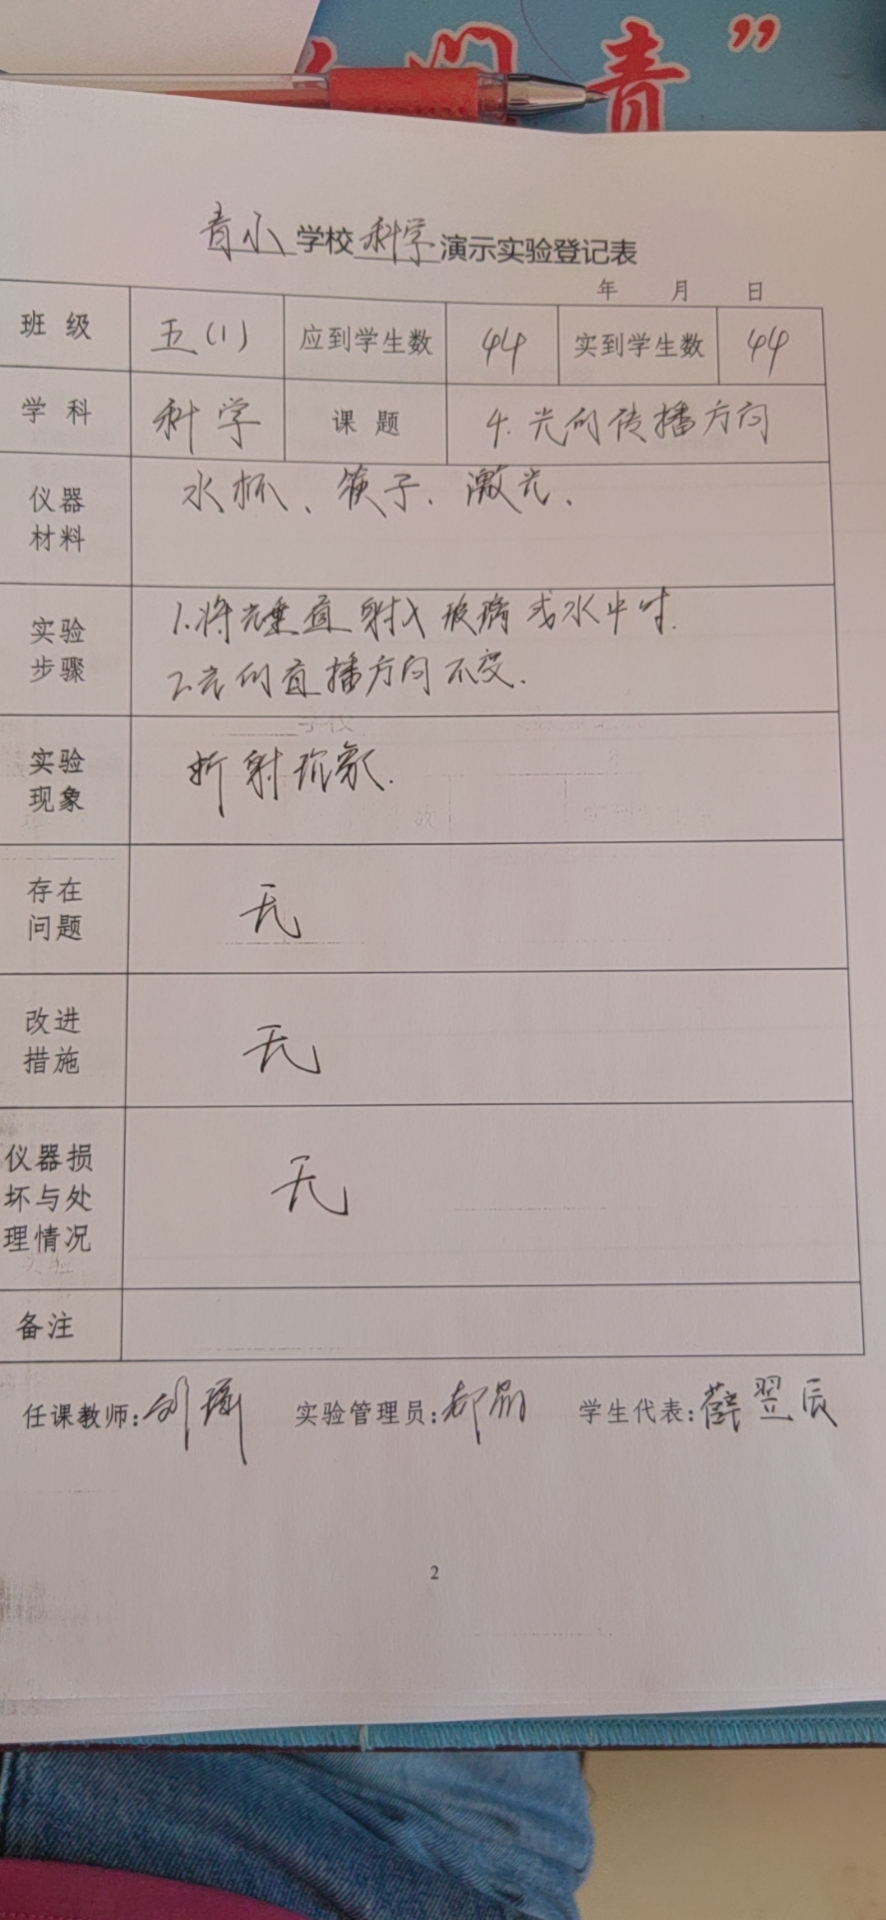 青”
青小学校科学演示实验登记表
年 月 日
班级 五(1) 应到学生数 44 实到学生数 44
学科 科学 课题 4.光的传播方向
仪器材料 水杯、筷子、激光、
实验步骤 1.将光垂直射入玻璃或水中时.
2.光的直播方向不变.
实验现象 折射现象.
存在问题 无
改进措施 无
仪器损坏与处理情况 无
备注
任课教师: 实验管理员: 学生代表:薛翌辰
2